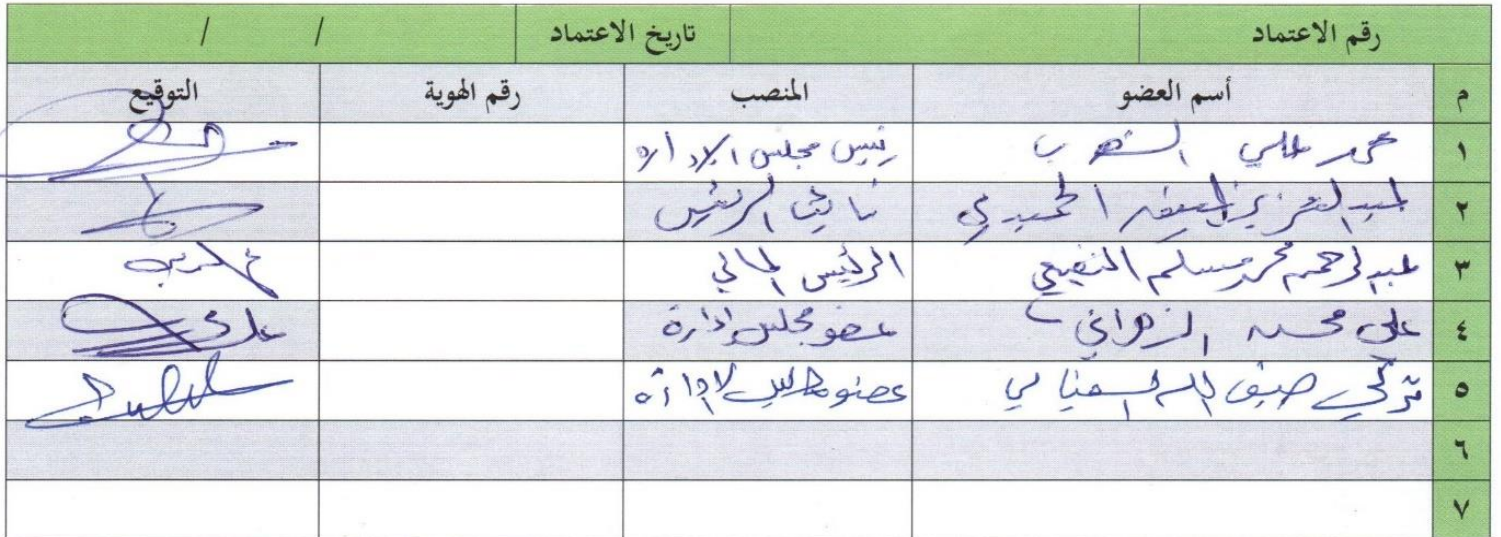 رقم الاعتماد تاريخ الاعتماد / /
م أسم العضو المنصب رقم الهوية التوقيع
١ محمد علي رئيس مجلس الإدارة
٢ عبد العزيز الحميدي نائب الرئيس
٣ عبد الرحمن محمد مسلم النفيعي الرئيس المالي
٤ علي محسن الزهراني عضو مجلس إدارة علي
٥ تركي ضيف الله السفياني عضو مجلس الإدارة
٦
٧